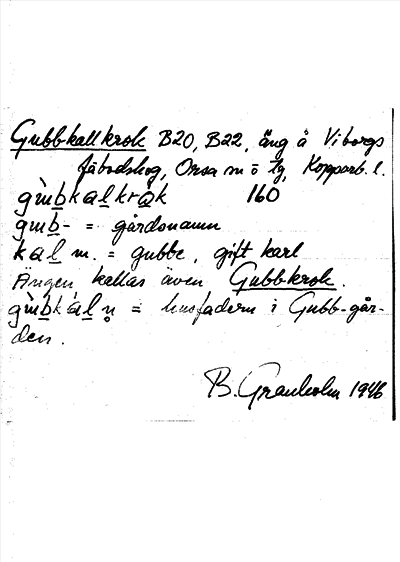 Gubbkallkrok B20, B22, äng å Viborgs
fäbodskog, Orsa sn o tg, Kopparb. l.
gu̇bkalkråk 160
gub- = gårdsnamn
kal m. = gubbe, gift karl
Ängen kallas även Gubbkrok.
gùbkáln̥ = husfadern i Gubb-går-
den.
B. Granholm 1946